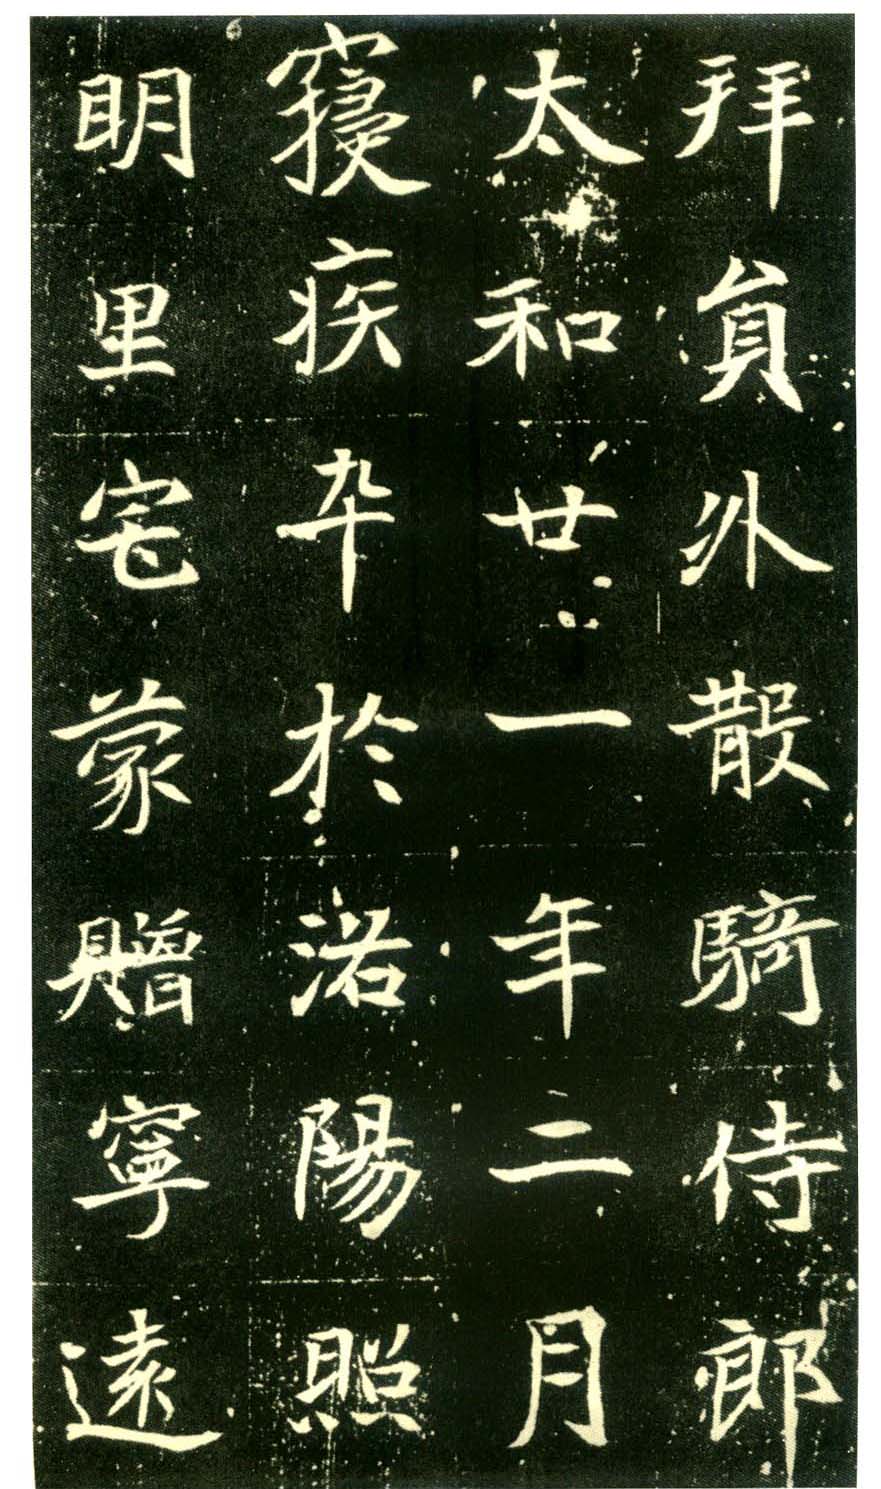 拜員外散騎侍郎
太和廿一年二月
寢疾卒於洛陽照
明里宅蒙贈寧遠